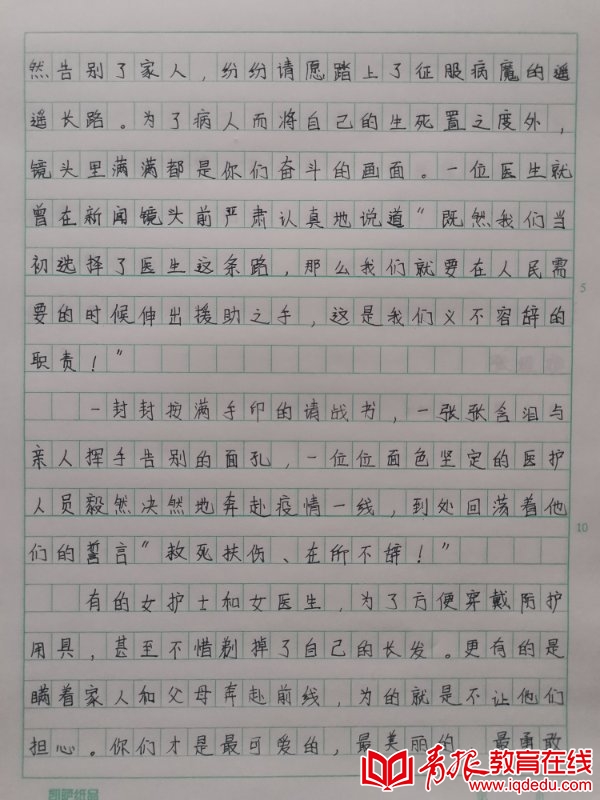 然告别了家人，纷纷请愿踏上了征服病魔的遥
遥长路。为了病人而将自己的生死置之度外，
镜头里满满都是你们奋斗的画面。一位医生就
曾在新闻镜头前严肃认真地说道“既然我们当
初选择了医生这条路，那么我们就要在人民需
5
要的时候伸出援助之手，这是我们义不容辞的
职责！”
一封封按满手印的请战书，一张张含泪与
亲人挥手告别的面孔，一位位面色坚定的医护
人员毅然决然地奔赴疫情一线，到处回荡着他
10
们的誓言“救死扶伤、在所不辞！”
有的女护士和女医生，为了方便穿戴防护
用具，甚至不惜剃掉了自己的长发。更有的是
瞒着家人和父母奔赴前线，为的就是不让他们
担心。你们才是最可爱的，最美丽的 最勇敢
凯萨纸品
青报教育在线
www.iqdedu.com